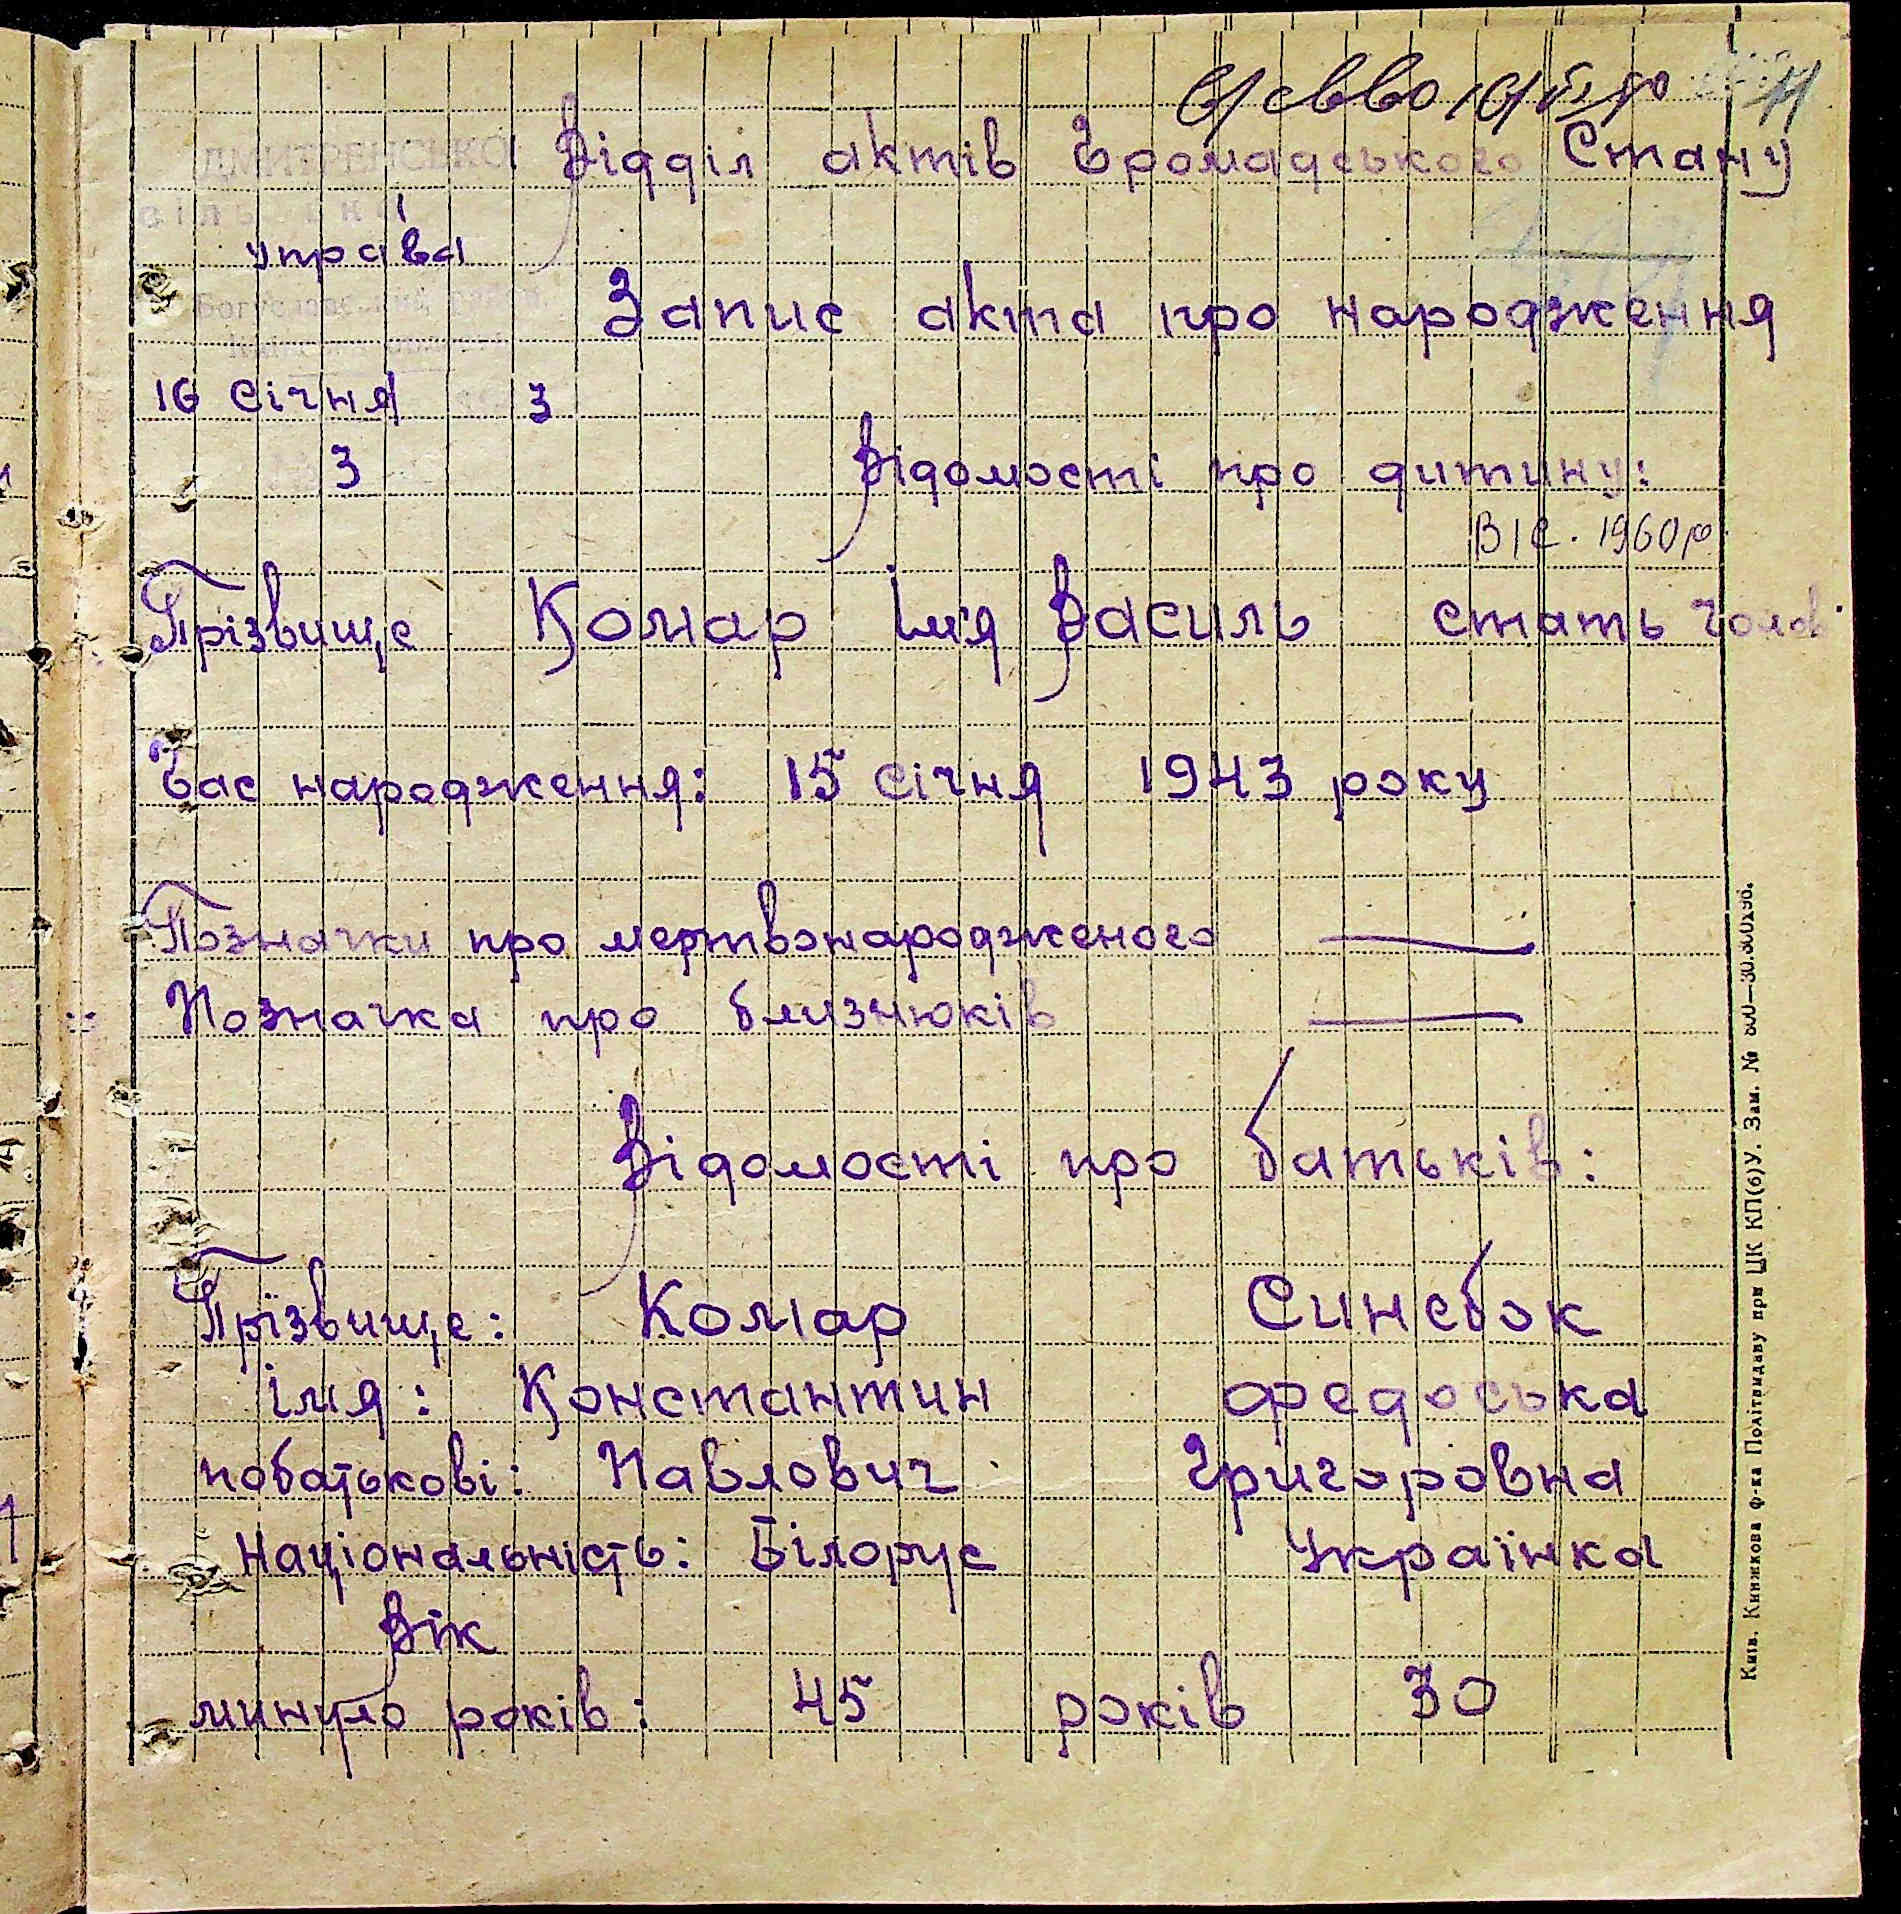 11
Відділ актів Громадського Стану
ДМИТРЕНСЬКО
управа
Богуславський район,
Запис акта про народження
16 Січня 3
3 Відомості про дитину:
ВІС. 1960р.
Прізвище Комар Ім'я Василь стать Чолов.
Час народження: 15 Січня 1943 року
Позначки про мертвонародженого —
Позначка про близнюків —
Відомості про батьків:
Прізвище: Комар Синебок
імя: Константин Федоська
побатькові: Павлович Григоровна
Національність: Білорус Українка
Вік
минуло років: 45 років 30
Київ. Книжкова ф-ка Політвидаву при ЦК КП(б)У. Зам. № 800—30.300х96.